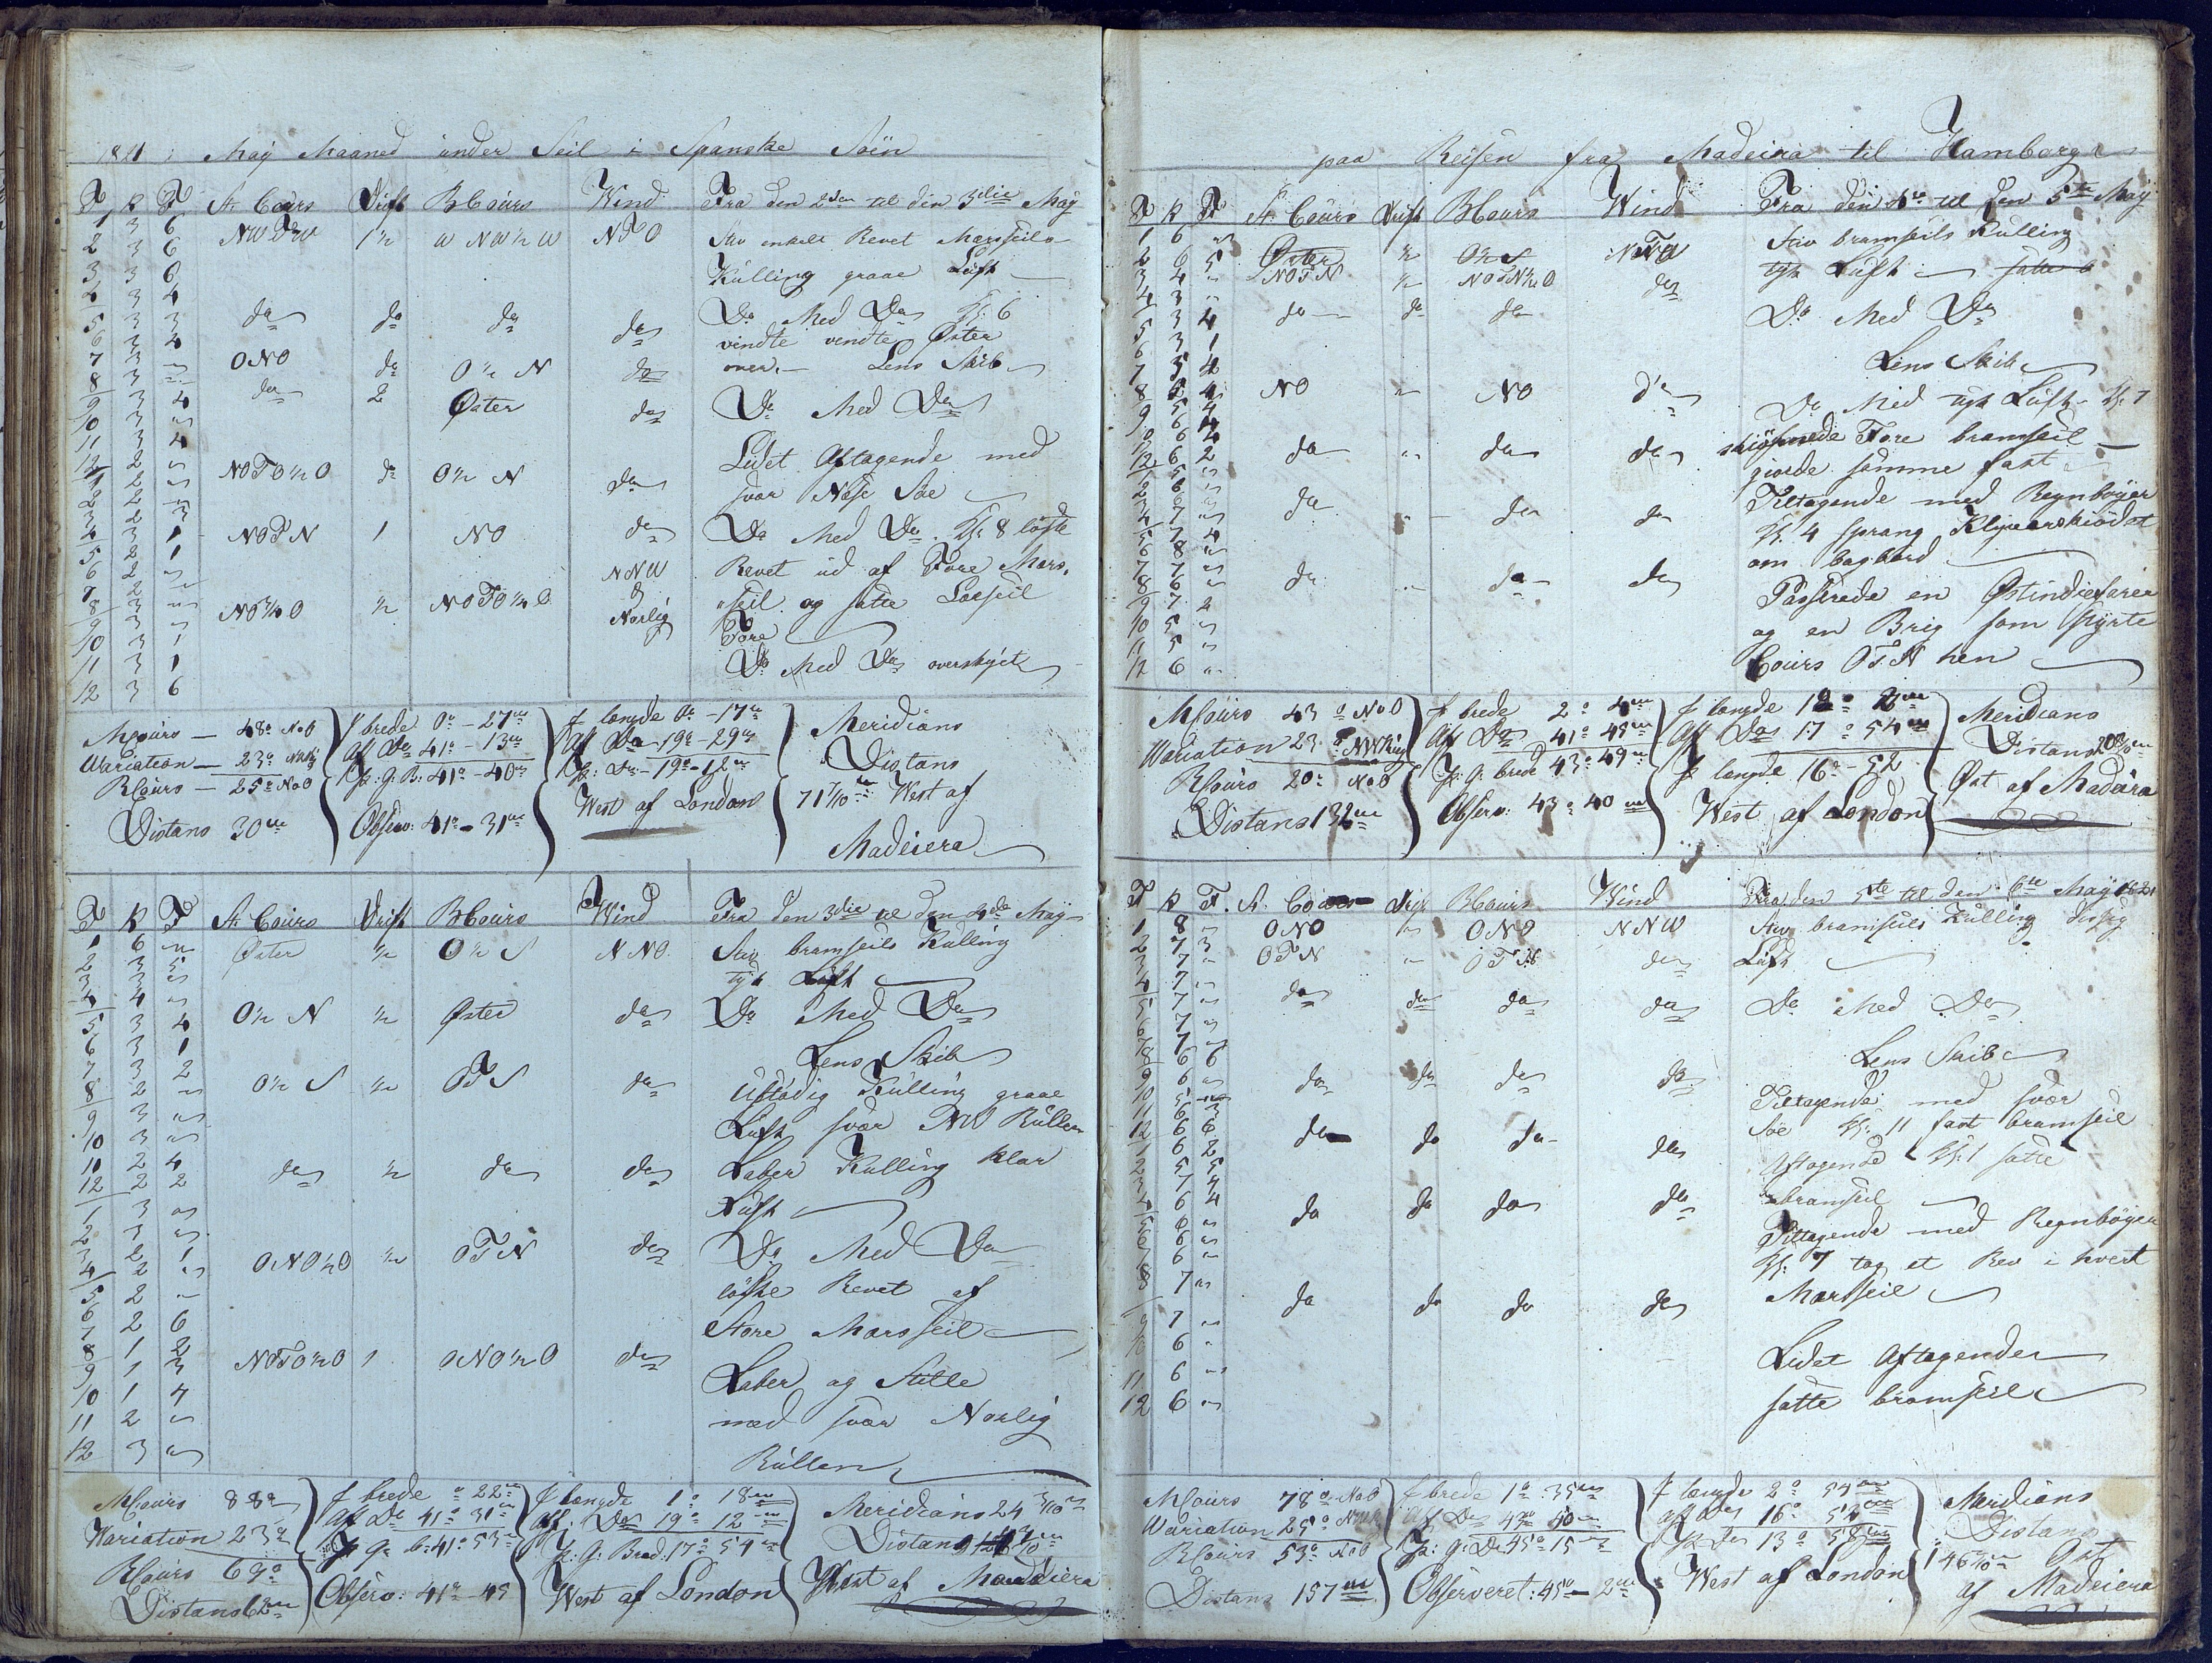 1821 May Maaned under Seil i Spanske Söen
T K F St. Cours Drift B Cours Wind Fra den 2den til den 3die May
1 3 6 NWTW 1½ W NW½W NTO Stiv enkelt Revet Marsseils
2 3 6
3 3 0 Kulling graae Luft
4 3 4
5 3 3 do do do do Do Med Do Kl: 6
6 3 4 vindte vindte Øster
7 3 " ONO do O½N do over. Lens Skib
8 3 " do 2 Øster do Do Med Do
9 3 4
10 3 "
11 3 4 Lidet Aftagende med
12 2 " NOTO½O do O½N do svær Næse Söe
1 2 "
2 2 "
3 2 3
4 3 1 NOTN 1 NO do Do Med Do. Kl: 8 löste
5 2 1
6 2 " NNW Revet ud af Fore Mars,
7 2 " & seil og satte Læseil
8 3 " NO½O ½ NOTO½O Norlig Fore
9 3 "
10 3 1
11 3 1 Do Med Do overskyet
12 3 6
M Cours — 48° NoO
Variation — 23° NWlig
R Cours — 25° NoO
Distans 30m
f brede 0° - 27m
af Do 41° - 13m
P: G: B: 41° - 40m
Observ: 41° - 31m
f længde 0° - 17m
af Do 19° - 29m
P: Do 19° - 12m
West af London
Meridians
Distans
71 7/10m West af
Madeiera
T K F St. Cours Drift B Cours Wind Fra den 3die til den 4de May
1 6 " Øster ½ O½S NNO Stiv bramseils Kulling
2 3 5 tyk Luft
3 3 "
4 4 " O½N ½ Øster do Do Med Do
5 3 4
6 3 1 Lens Skib
7 3 2
8 2 " O½S ½ OTS do Ustadig Kulling graae
9 3 " Luft svær NW Rullen
10 3 "
11 2 4 do ½ do do Laber Kulling klar
12 2 2
1 3 " Luft
2 3 "
3 2 1 ONO½O ½ OTN do Do Med Do
4 2 "
5 2 " löste Revet af
6 2 6 Store Marsseil
7 1 2
8 1 3 NOTO½O 1 ONO½O do Laber og Stille
10 1 4
11 2 " med svær Norlig
12 3 " Rullen
M Cours 88°
Variation 23°
R Cours 69°
Distans 62m
f brede " 22m
af Do 41° 31m
P G: b: 41° 53m
Observ: 41° - 45
f længde 1° 18m
af: Do 19° 12m
P: G: Bred: 17° 54m
West af London
Meridians 24 3/10m
Distans
West af Madeiera
paa Reisen fra Madeira til Hamborg
T K F St. Cours Drift B Cours Wind Fra den 4de til den 5te May
1 6 " Stiv bramseils Kulling
2 6 5 Øster ½ O½S NNW tyk Luft satte
3 4 " NOTN ½ NOTN½O do
4 3 " do do do Do Med Do
5 3 4
6 3 1 Lens Skib
7 5 4
8 5 4 NO " NO do Do Med tyk Luft Kl: 7
9 5 4
10 6 4 Fore bramseil
11 6 4 giorde samme fast
12 6 2 do " do do
1 5 " Tiltagende med Regnböger
2 6 " do " do do Kl. 4 sprang Klyverskiödet
3 6 " om bagbord
4 7 "
5 7 4
6 8 " do " do do Passerede en Østindiefarer
7 7 " og en Brig som styrte
8 6 " Cours OTN hen
9 7 2
10 5 "
11 5 "
12 6 "
M Cours 43° NoO
Variation 23° NWlig
R Cours 20° NoO
Distans 132m
f brede 2° 4m
af Do 41° 45m
P: G: brede 43° 49m
Observ: 43° 40m
f længde 1° 2m
af Do 17° 54m
P længde 16° - 52
West af London
Meridians
Distans
Øst af Madeira
T K F. St. Cours Drift B Cours Wind Fra den 5te til den 6te May 1821
1 8 " ONO " ONO NNW Stiv bramseils Kulling
2 7 3 OTN " OTN do Luft
3 7 "
4 7 " do do do do Do Med Do
5 7 "
6 7 " Lens Skib
7 7 "
8 6 6 do do do do Tiltagende med svær
9 6 " Söe Kl: 11 fast bramseil
10 5 "
11 6 3 do do do do Aftagende Kl: 1 satte
12 6 6
1 6 2 bramseil
2 5 5
3 7 4 do do do do Tiltagende med Regnböger
4 6 4
5 6 " Kl: 7 tog et Rev i hvert
6 6 "
7 6 " Marsseil
8 7 " do do do do
9 7 "
10 6 " Lidet Aftagende
11 6 "
12 6 " satte bramseil
M Cours 78° NoO
Variation 25° NWlig
R Cours 53° NoO
Distans 157m
f brede 1° 35m
af Do 43° 40m
P: G: Do 45° 15m
Observeret: 45° - 2m
f længde 2° 54m
af Do 16° 52m
P Do 13° 58m
West af London
Meridians
Distans
Øst
af Madeiera